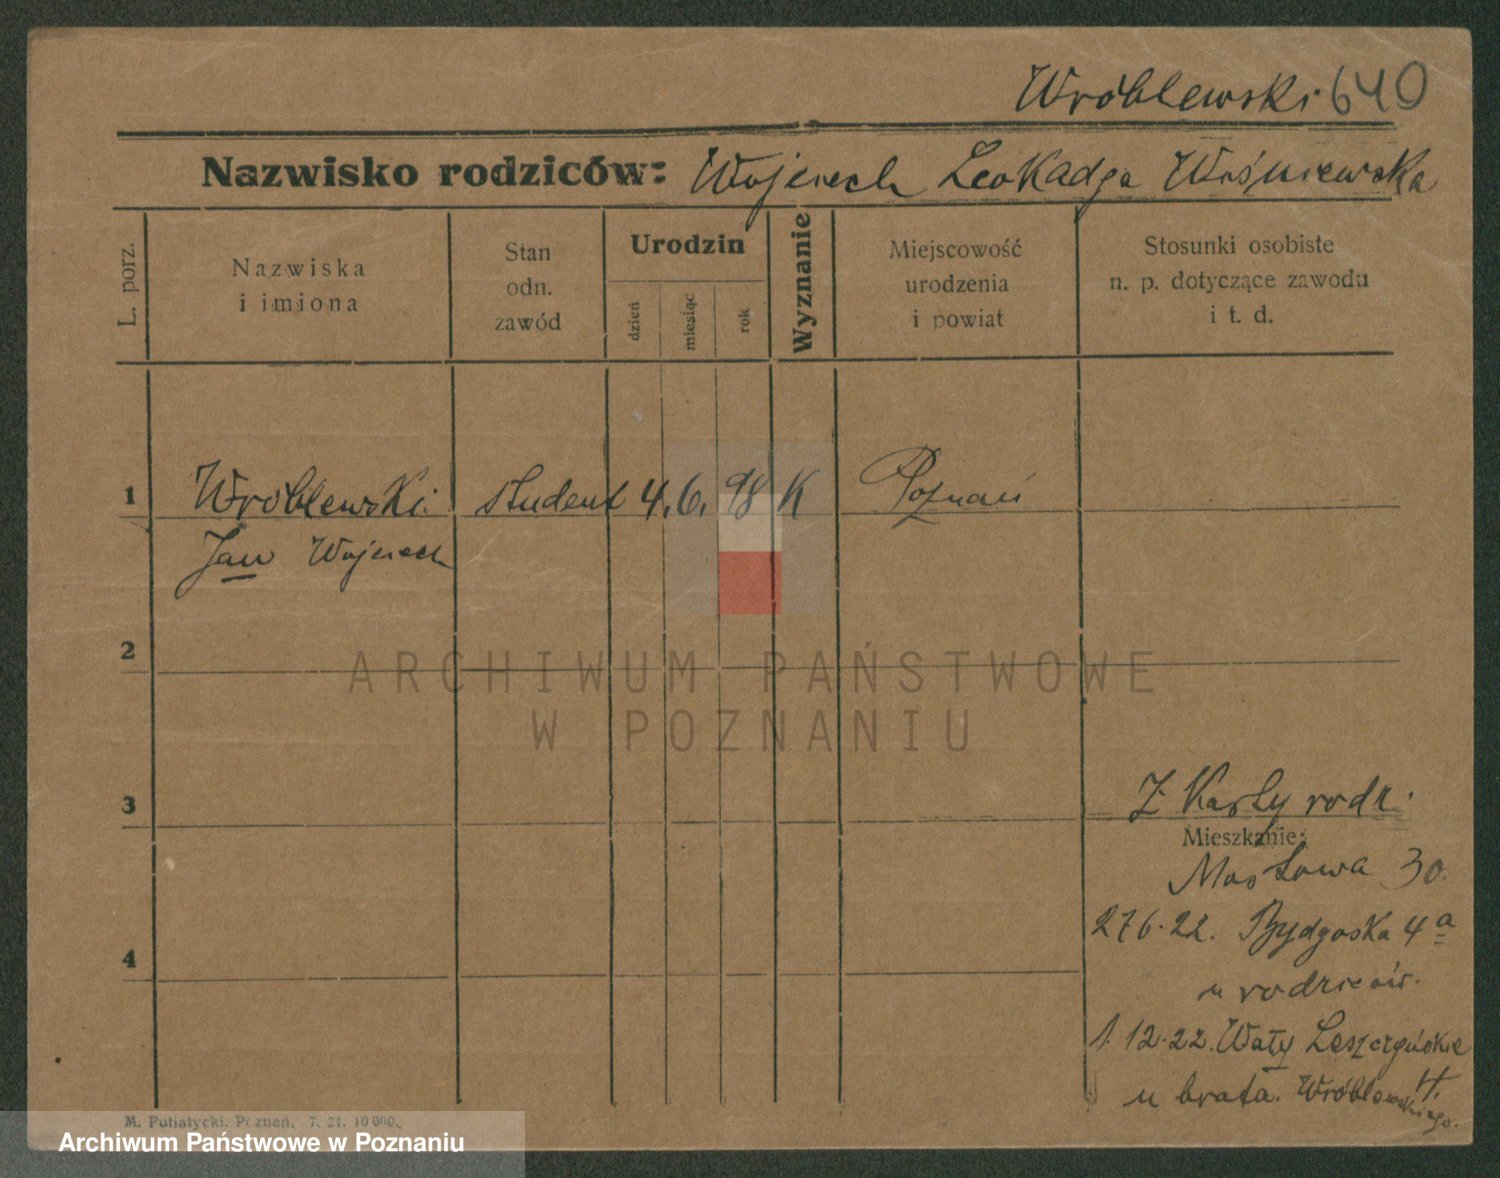 Wróblewski 640
Nazwisko rodziców: Wojciech Leokadya Wośniewska
L. porz.
Nazwiska
i imiona
Stan
odn.
zawód
Urodzin
dzień
miesiąc
rok
Wyznanie
Miejscowość
urodzenia
i powiat
Stosunki osobiste
n. p. dotyczące zawodu
i t. d.
1 Wróblewski student 4. 6. 98 K Poznań
Jan Wojciech
2
ARCHIWUM PAŃSTWOWE
W POZNANIU
3
Z Karty rodz.
Mieszkanie:
Mostowa 30.
4
27 6. 22. Bydgoska 4a
u rodziców.
1. 12. 22. Wały Leszczyńskie
u brata. Wróblewskiego. 4.
M. Putiatycki, Poznań. 7. 21. 10 000.
Archiwum Państwowe w Poznaniu